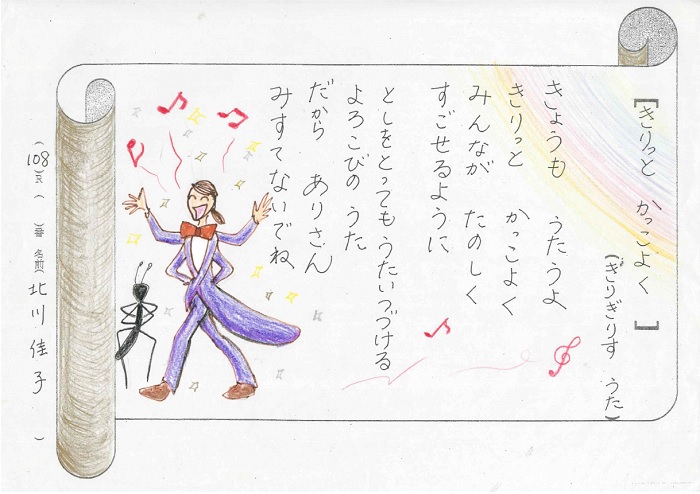 【きりっと かっこよく】
(ぎりぎりす うた)
きょうも うたうよ
きりっと かっこよく
みんなが たのしく
すごせるように
としをとっても うたいつづける
よろこびの うた
だから ありさん
みすてないでね
(108)式( )番 名前 北川 佳子 )